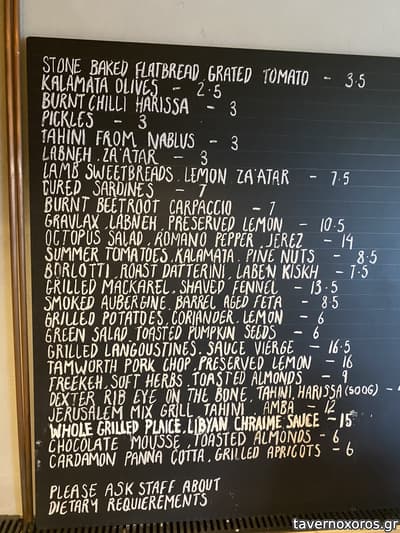 STONE BAKED FLATBREAD, GRATED TOMATO - 3.5
KALAMATA OLIVES - 2.5
BURNT CHILLI HARISSA - 3
PICKLES - 3
TAHINI FROM NABLUS - 3
LABNEH, ZA'ATAR - 3
LAMB SWEETBREADS, LEMON ZA'ATAR - 7.5
CURED SARDINES - 7
BURNT BEETROOT CARPACCIO - 7
GRAVLAX, LABNEH, PRESERVED LEMON - 10.5
OCTOPUS SALAD, ROMANO PEPPER, JEREZ - 14
SUMMER TOMATOES, KALAMATA, PINE NUTS - 8.5
BORLOTTI, ROAST DATTERINI, LABEN KISKH - 7.5
GRILLED MACKAREL, SHAVED FENNEL - 13.5
SMOKED AUBERGINE, BARREL AGED FETA - 8.5
GRILLED POTATOES, CORIANDER, LEMON - 6
GREEN SALAD, TOASTED PUMPKIN SEEDS - 6
GRILLED LANGOUSTINES, SAUCE VIERGE - 16.5
TAMWORTH PORK CHOP, PRESERVED LEMON - 16
FREEKEH, SOFT HERBS, TOASTED ALMONDS - 9
DEXTER RIB EYE ON THE BONE, TAHINI, HARISSA (500G) -
JERUSALEM MIX GRILL, TAHINI, AMBA - 12
WHOLE GRILLED PLAICE, LIBYAN CHRAIME SAUCE - 15
CHOCOLATE MOUSSE, TOASTED ALMONDS - 6
CARDAMON PANNA COTTA, GRILLED APRICOTS - 6
PLEASE ASK STAFF ABOUT
DIETARY REQUIEREMENTS
tavernoxoros.gr